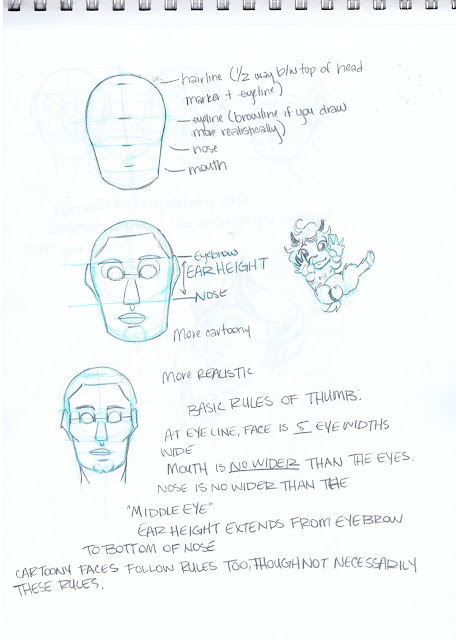 hairline (1/2 way b/w top of head
marker + eyeline)
eyeline (browline if you draw
more realistically)
nose
mouth
Eyebrow
EAR HEIGHT
NOSE
More cartoony
More REALISTIC
BASIC RULES OF THUMB:
AT EYE LINE, FACE IS 5 EYE WIDTHS
WIDE
MOUTH IS NO WIDER THAN THE EYES.
NOSE IS NO WIDER THAN THE
"MIDDLE EYE"
EAR HEIGHT EXTENDS FROM EYEBROW
TO BOTTOM OF NOSE
CARTOONY FACES FOLLOW RULES TOO, THOUGH NOT NECESSARILY
THESE RULES.